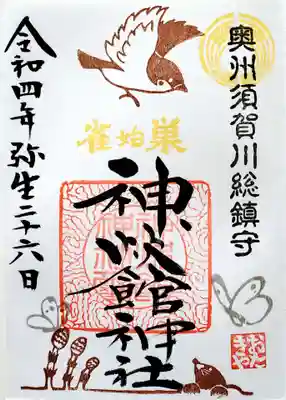 奥州須賀川総鎮守
雀始巣
神炊館神社
令和四年弥生二十六日